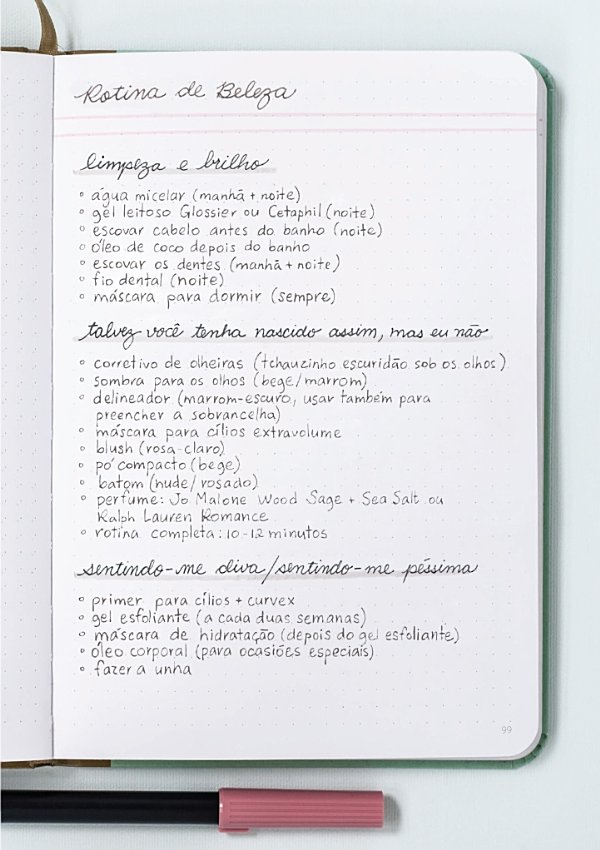 Rotina de Beleza
limpeza e brilho
° água micelar (manhã + noite)
° gel leitoso Glossier ou Cetaphil (noite)
° escovar cabelo antes do banho (noite)
° óleo de coco depois do banho
° escovar os dentes (manhã + noite)
° fio dental (noite)
° máscara para dormir (sempre)
talvez você tenha nascido assim, mas eu não
° corretivo de olheiras (tchauzinho escuridão sob os olhos)
° sombra para os olhos (bege/marrom)
° delineador (marrom-escuro, usar também para
preencher a sobrancelha)
° máscara para cílios extravolume
° blush (rosa-claro)
° pó compacto (bege)
° batom (nude/rosado)
° perfume: Jo Malone Wood Sage + Sea Salt ou
Ralph Lauren Romance
° rotina completa: 10-12 minutos
sentindo-me diva/sentindo-me péssima
° primer para cílios + curvex
° gel esfoliante (a cada duas semanas)
° máscara de hidratação (depois do gel esfoliante)
° óleo corporal (para ocasiões especiais)
° fazer a unha
99